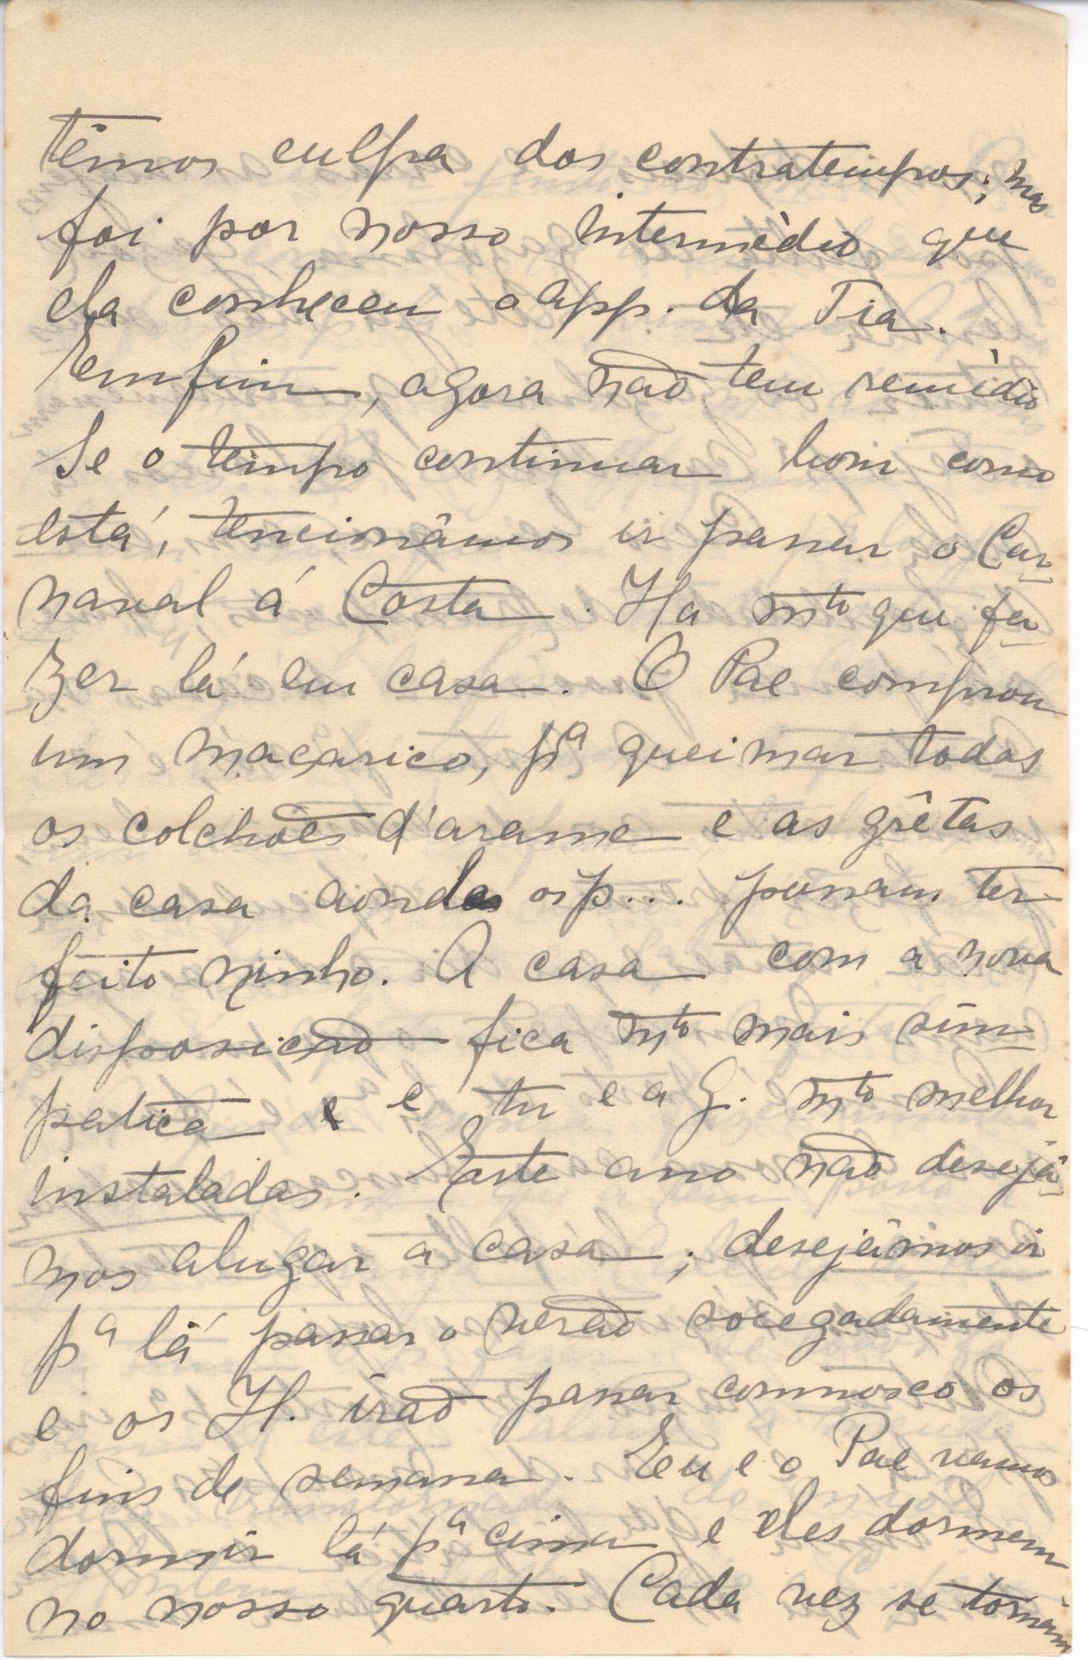 têmos culpa dos contratempos; mas
foi por nosso intermèdio que
ela conheceu o app. da Tia.
Emfim, agora não tem remèdio
Se o tempo continuar bom como
está, tencionâmos ir passar o Car-
naval á Costa. Ha mto que fa-
zer lá em casa. O Pae comprou
um maçarico, pa queimar todos
os colchoẽs d'arame e as grêtas
da casa aonde os p... possam ter
feito ninho. A casa com a nova
disposição fica mto mais sim-
patica e tu e a G. mto melhor
instaladas. Este ano não desejâ-
mos alugar a casa; desejâmos ir
pa lá passar o verão socegadamente
e os H. irão passar comnosco os
fins de semana. Eu e o Pae vamos
dormir lá pa cima e eles dormem
no nosso quarto. Cada vez se tornam